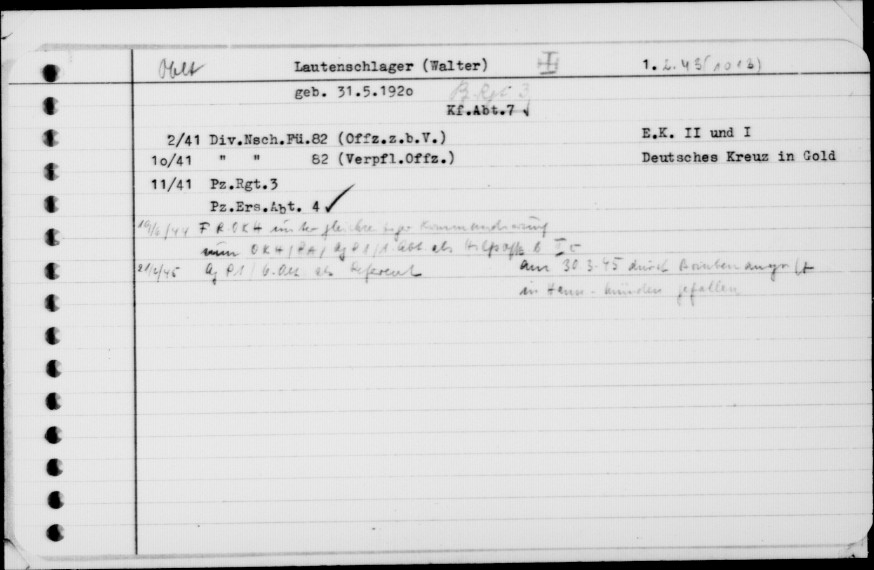 Oblt Lautenschlager (Walter) 1.2.43 (1013)
geb. 31.5.1920 Pz.Rgt. 3
Kf.Abt.7
2/41 Div.Nsch.Fü.82 (Offz.z.b.V.) E.K. II und I
10/41 " " 82 (Verpfl.Offz.) Deutsches Kreuz in Gold
11/41 Pz.Rgt.3
Pz.Ers.Abt. 4
/44 F R OKH unter gleichzeitiger Kommandierung
zum OKH/PA/ Ag P1/1. Abt als
/45 Ag P1/6. Abt als Referent am 30.3.45 durch Bombenangriff
in Hann.-Münden gefallen